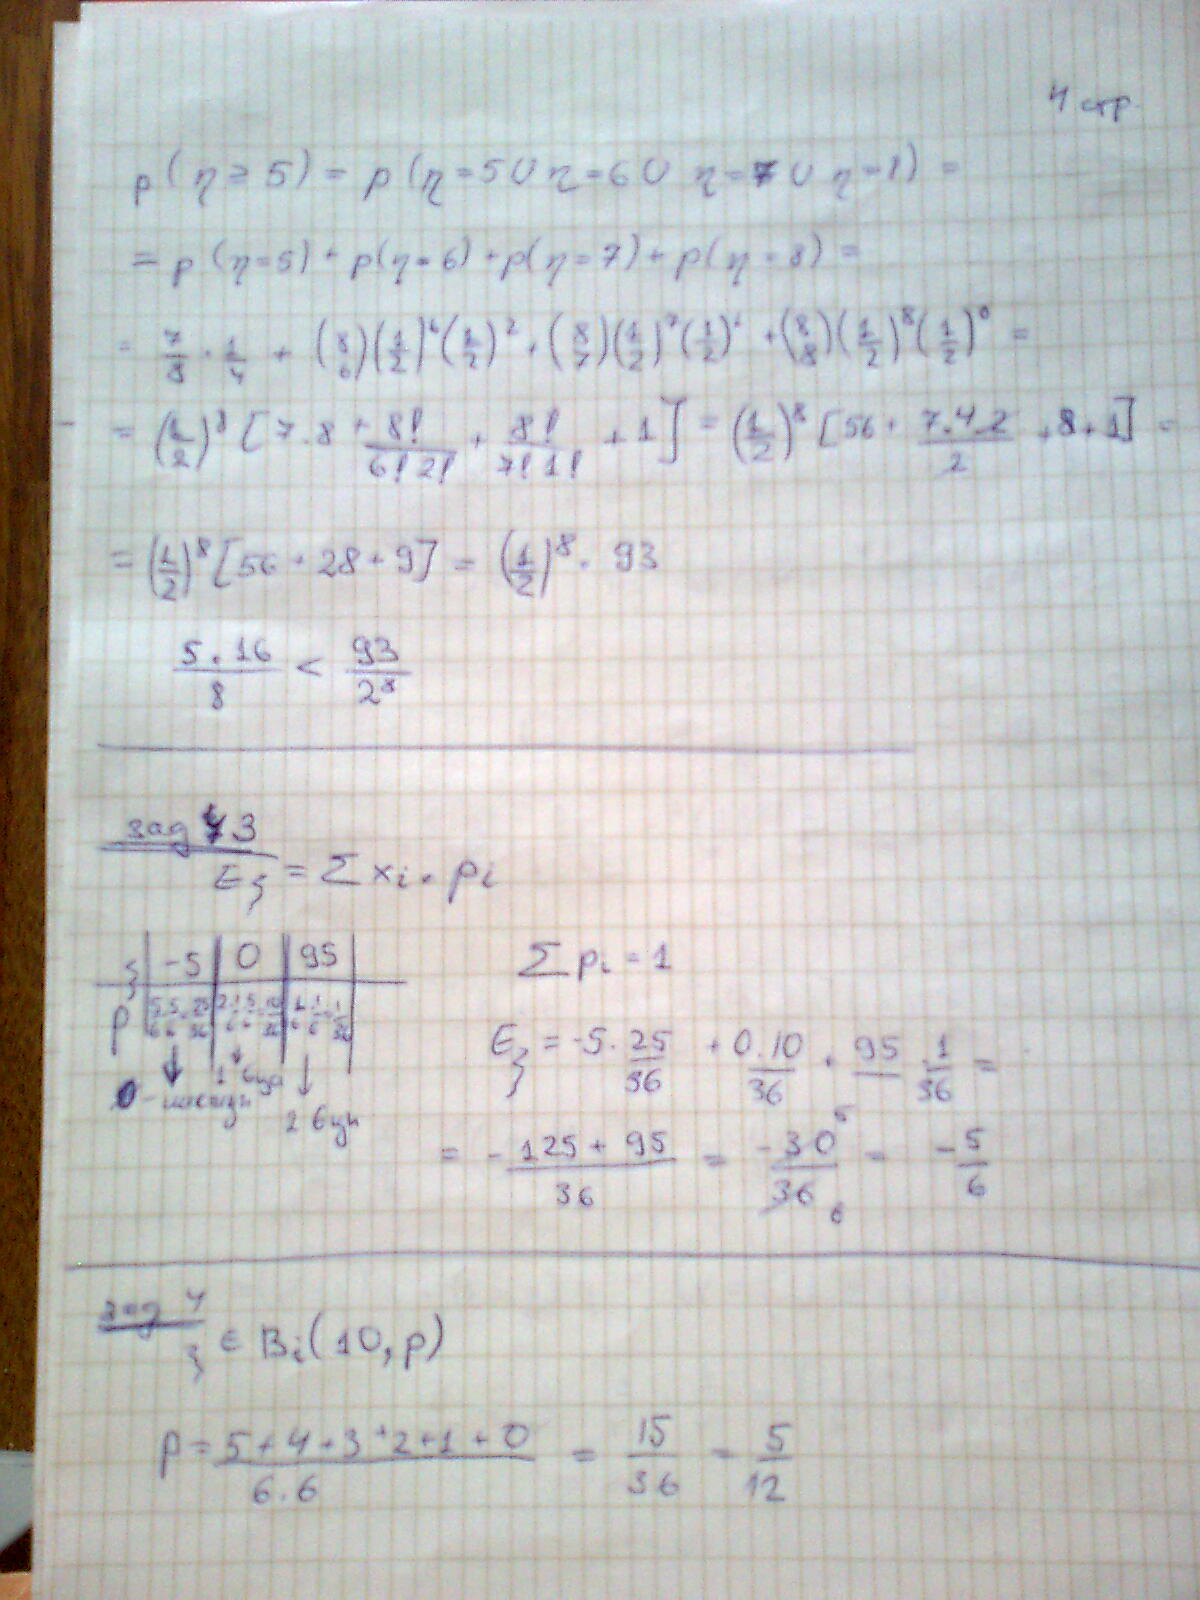 4 стр.
p(η ≥ 5) = p(η=5 ∪ η=6 ∪ η=7 ∪ η=8) =
= p(η=5) + p(η=6) + p(η=7) + p(η=8) =
= 7/8 · 1/4 + (8 6)(1/2)^6(1/2)^2 + (8 7)(1/2)^7(1/2)^1 + (8 8)(1/2)^8(1/2)^0 =
= (1/2)^8 [7.8 + 8!/6!2! + 8!/7!1! + 1] = (1/2)^8 [56 + 7.4.2/2 + 8 + 1] =
= (1/2)^8 [56 + 28 + 9] = (1/2)^8 . 93
5.16/8 < 93/2^8
зад 3
Eξ = Σ xi . pi
ξ | -5 | 0 | 95 |
Σ pi = 1
p | 5/6 . 5/6 = 25/36 | 2 . 1/6 . 5/6 = 10/36 | 1/6 . 1/6 = 1/36
Eξ = -5 . 25/36 + 0.10/36 + 95 . 1/36 =
1
2
= -125 + 95/36 = -30/36 = -5/6
зад 4
ξ ∈ Bi(10, p)
p = 5+4+3+2+1+0/6.6 = 15/36 = 5/12